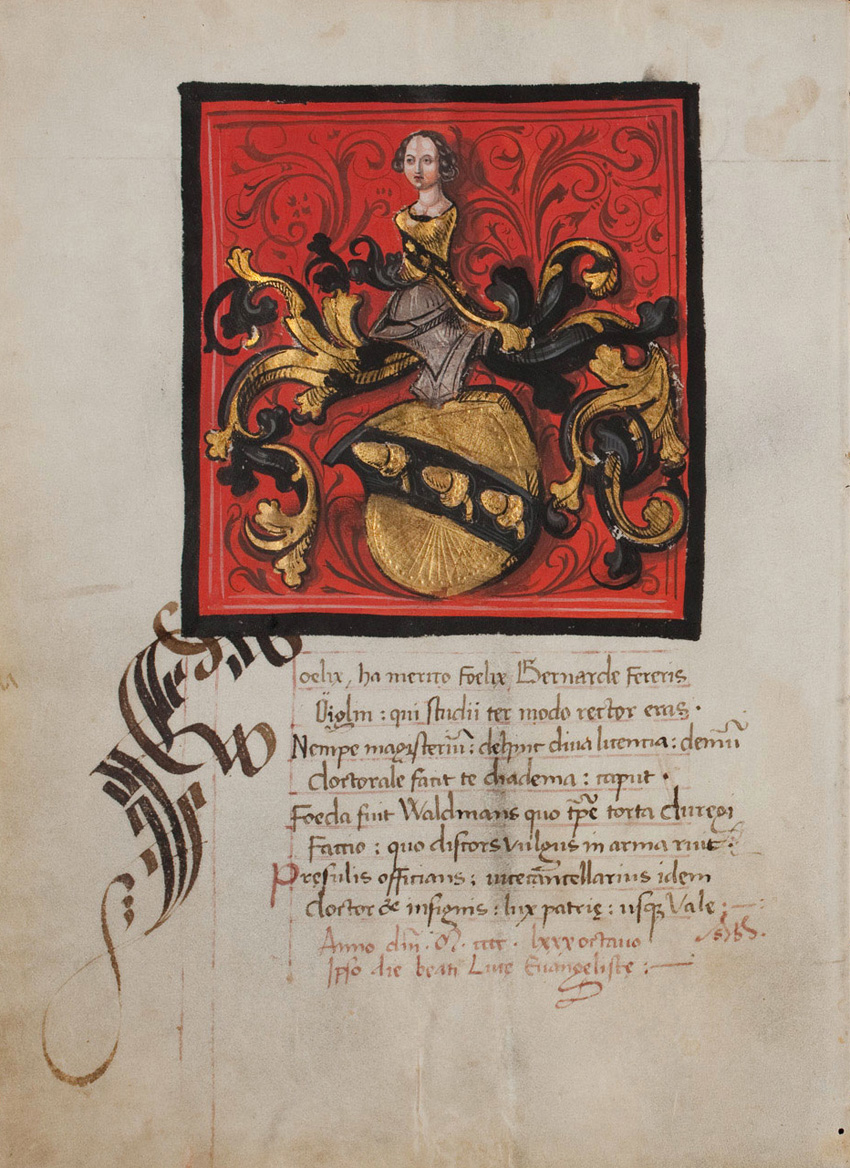 Foelix, ha merito Foelix Bernarde fereris
Öiglin : qui studii ter modo rector eras ·
Nempe magisteriū : dehinc diva licentia : demū
doctorale facit te diadema : caput ·
Foeda fuit Waldmans quo tꝑe torta duregi
Factio : quo discors vulgus in arma ruit ·
Pręsulis officians : vicecancellarius idem
doctor & insignis : lux patrię : usqꝫ Vale :
Anno dm̄ · M · cccc · lxxxoctavo
Ipso die beati Lucę Evangelistę :